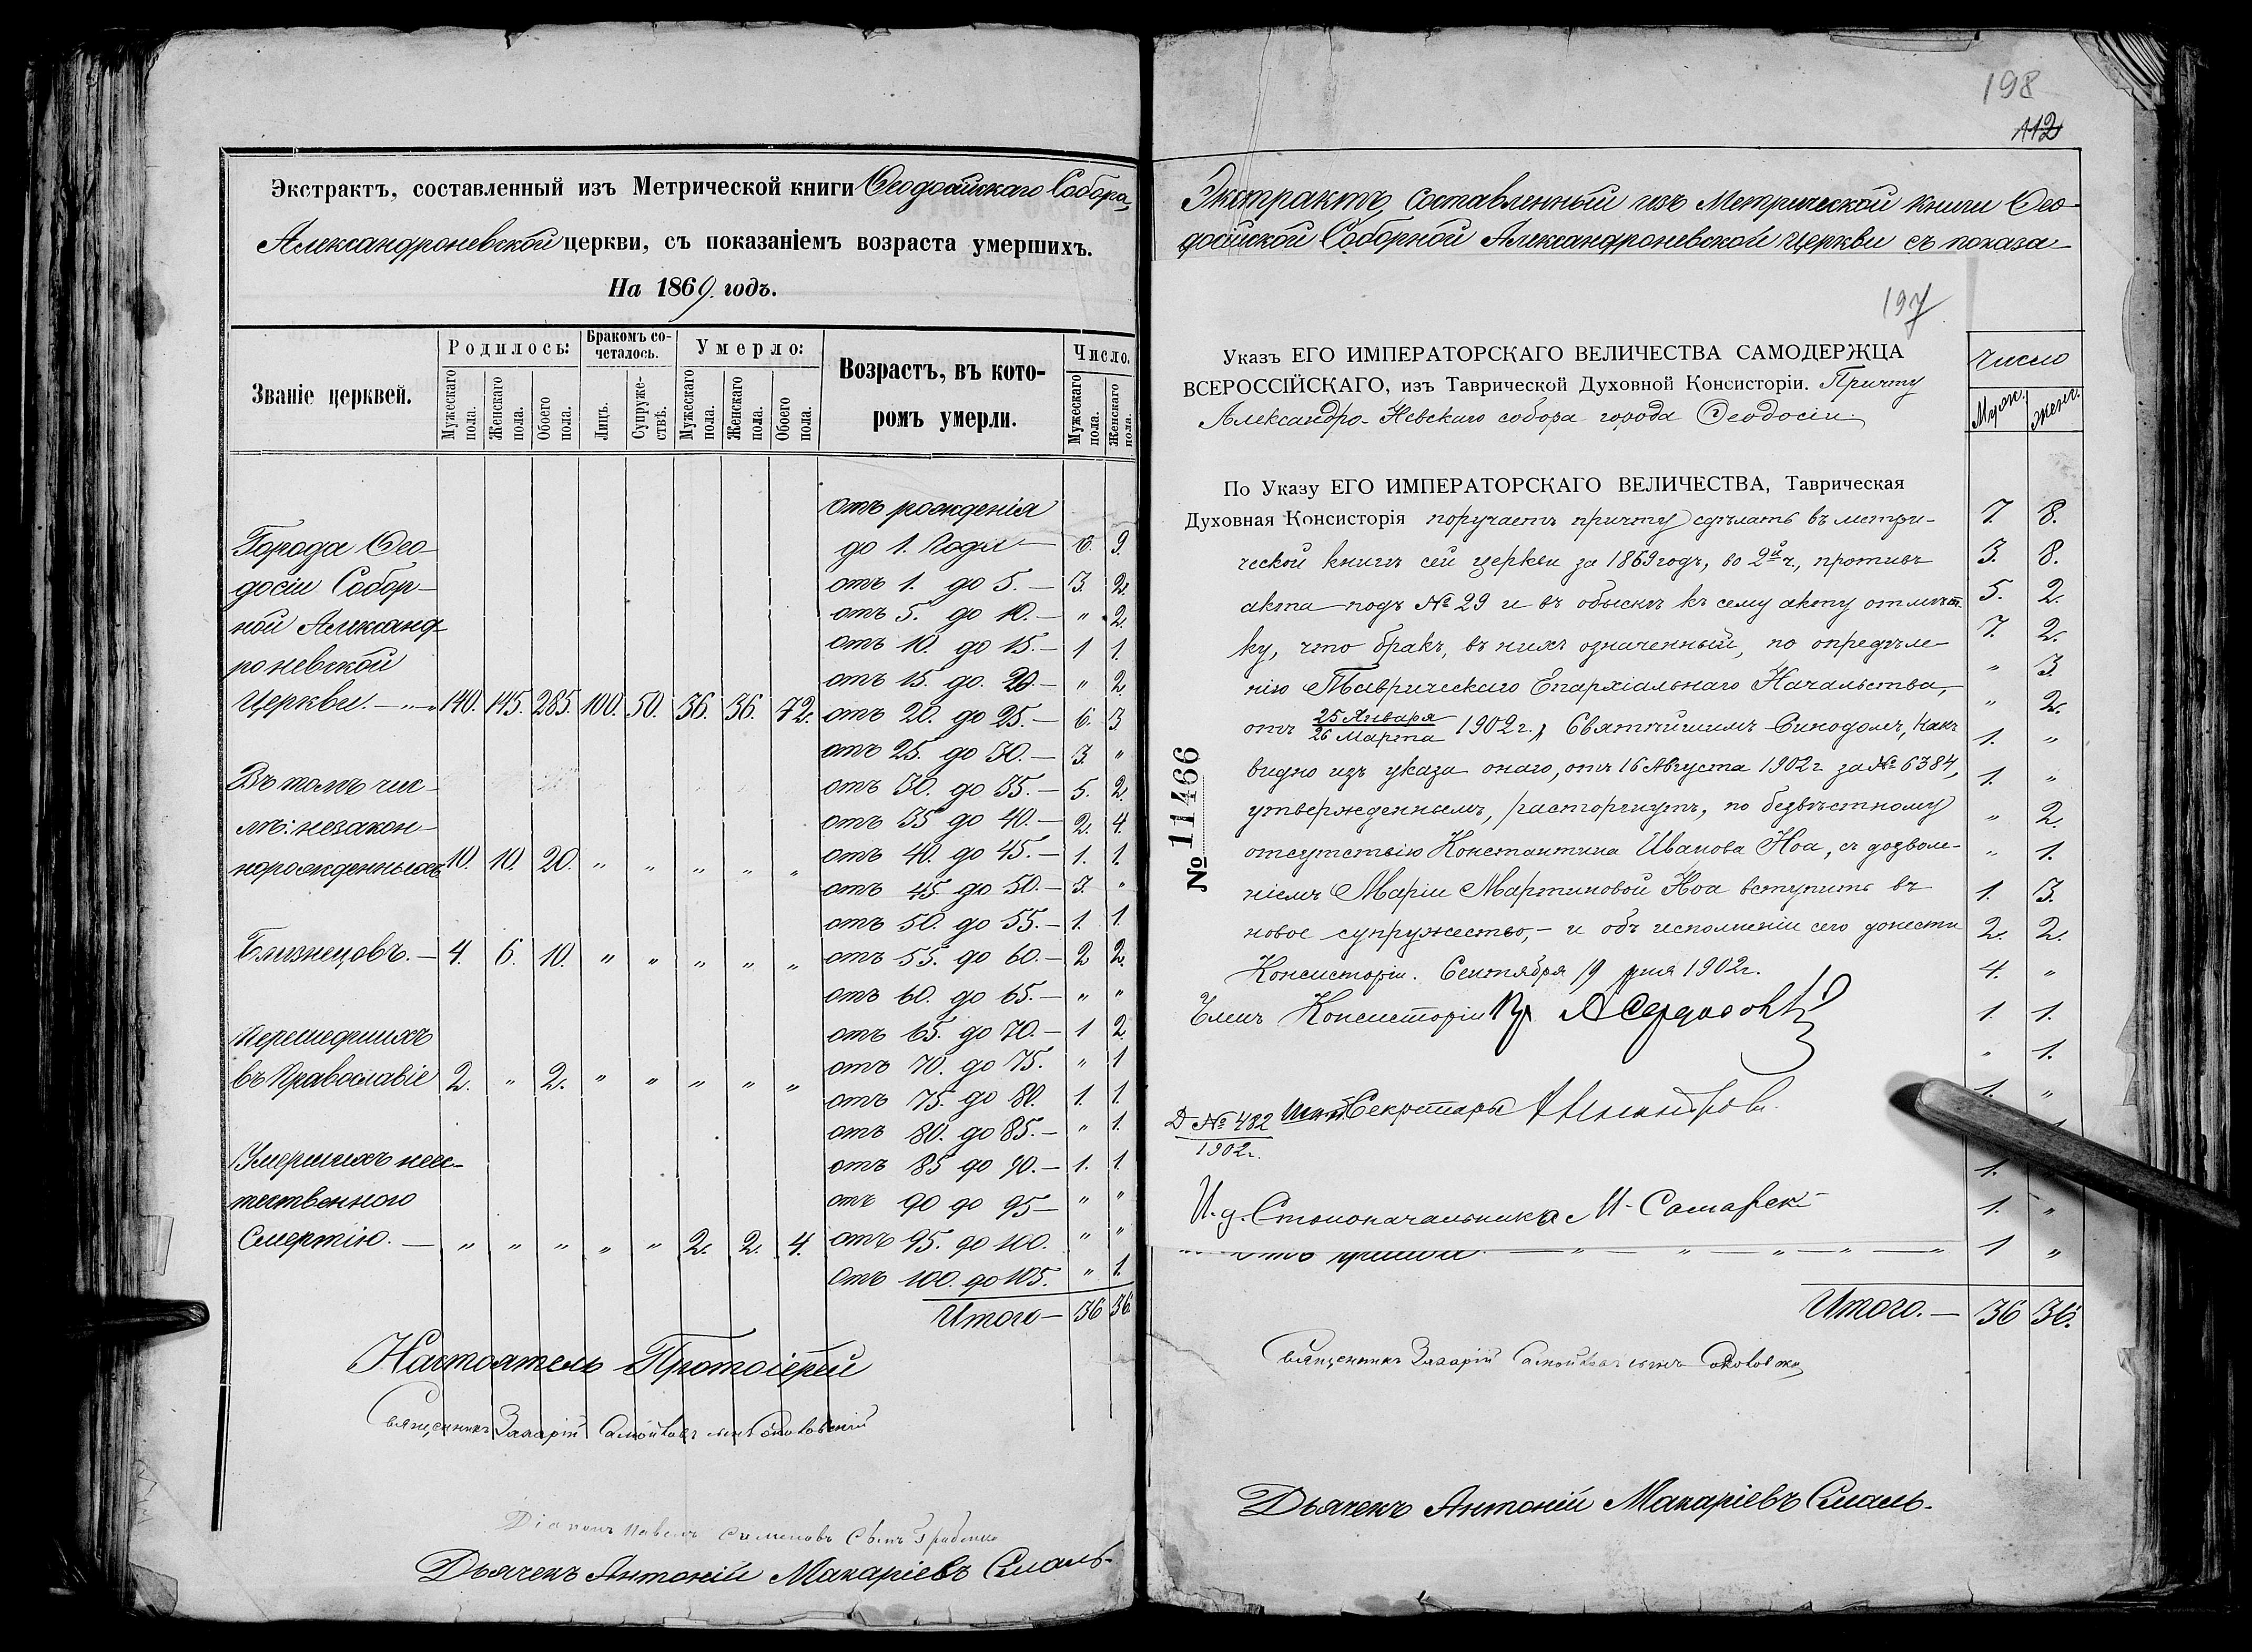 Экстрактъ, составленный изъ Метрической книги Ѳеодосійскаго Собора,
Александроневской церкви, съ показаніемъ возраста умершихъ.
На 1869 годъ.
Званіе церквей.
Родилось:
Мужескаго пола.
Женскаго пола.
Обоего пола.
Бракомъ со-
четалось.
Лицъ.
Супруже-
ствъ.
Умерло:
Мужескаго пола.
Женскаго пола.
Обоего пола.
Возрастъ, въ кото-
ромъ умерли.
Число.
Мужескаго пола.
Женскаго пола.
отъ рожденія
до 1. года — 6. 9.
отъ 1. до 5. — 3. 2.
отъ 5. до 10. — " 2.
отъ 10. до 15. — 1 1.
отъ 15. до 20. — " 2.
отъ 20. до 25. — 6. 3
отъ 25. до 30. — 3. "
отъ 30. до 35. — 5. 2.
отъ 35 до 40. — 2. 4.
отъ 40. до 45. — 1. 1.
отъ 45 до 50. — 3. "
отъ 50. до 55. — 1. 1.
отъ 55. до 60. — 2 2.
отъ 60. до 65. — " "
отъ 65. до 70. — 1 2
отъ 70. до 75. " 1
отъ 75. до 80. 1. 1.
отъ 80. до 85. — " 1.
отъ 85 до 90. — 1. 1.
отъ 90 до 95 — " "
отъ 95. до 100. " "
отъ 100. до 105. " 1.
Итого — 36 36.
Города Ѳео-
досіи Собор-
ной Александ-
роневской
Церкви. — 140. 145. 285. 100. 50. 36. 36. 72.
Въ томъ чис-
лѣ: незакон-
норожденныхъ 10. 10. 20. " " " " "
Близнецовъ. — 4. 6. 10. " " " " "
Перешедшихъ
въ Православіе 2. " 2. " " " " "
Умершихъ неес-
тественного
Смертію. — " " " " " 2. 2. 4.
Настоятель Протоіерей
Священникъ Захарій
Діаконъ Павелъ Симеоновъ Сынъ
Дьячекъ Антоній Макаріевъ Смаль-
198
112
Экстрактъ, составленный изъ Метрической книги Ѳео-
досійской Соборной Александроневской церкви съ показа-
197
Указъ ЕГО ИМПЕРАТОРСКАГО ВЕЛИЧЕСТВА САМОДЕРЖЦА
ВСЕРОССІЙСКАГО, изъ Таврической Духовной Консисторіи. Причту
Александро-Невскаго собора города Ѳеодосіи.
По Указу ЕГО ИМПЕРАТОРСКАГО ВЕЛИЧЕСТВА, Таврическая
Духовная Консисторія поручаетъ причту сдѣлать въ метри-
ческой книгѣ сей церкви за 1869 годъ, во 2й ч., противъ
акта подъ № 29 и въ обыскѣ къ сему акту отмѣт-
ку, что бракъ, въ нихъ означенный, по опредѣле-
нію Таврическаго Епархіальнаго Начальства,
отъ 25 Января / 26 Марта 1902 г., Святѣйшимъ Синодомъ, какъ
видно изъ указа онаго, отъ 16 Августа 1902 г за № 6384,
утвержденнымъ, расторгнутъ, по безвѣстному
отсутствію Константина Иванова Ноа, съ дозволе-
ніемъ Маріи Мартиновой Ноа вступить въ
новое супружество, — и объ исполненіи сего донести
Консисторіи. Сентября 19 дня 1902 г.
Членъ Консисторіи
Секретарь
№ 11466
Д № 482
1902 г.
И. д. Столоначальника
Число
Муж. Женс.
7. 8.
3. 8.
5. 2.
7. 2.
" 3.
" 2.
1. "
1. "
" 2.
" 1.
1. 3.
2. 2.
4. "
1. 1.
" 1.
1. "
1.
1. "
1 "
Итого. — 36 36.
Священникъ Захарій
Дьячекъ Антоній Макаріевъ Смаль-